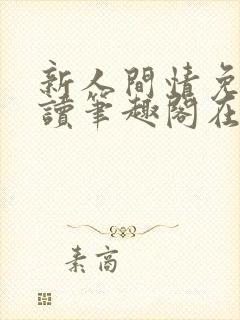 新人間情免
讀筆趣閣在
素高